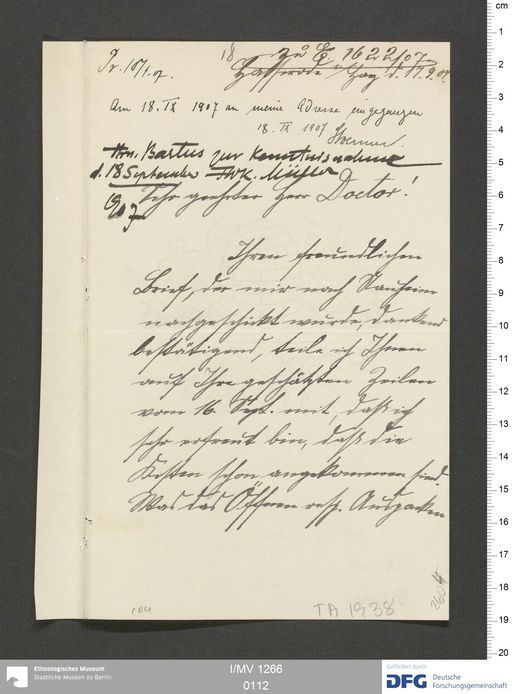 zu E 1622/07
Hasserode / Harz d. 17.9.07.
Am 18. IX 1907 an meine Adresse eingegangen
18. IX 1907
Hrn. Bartus zur Kenntnisnahme
d. 18 September FWK. Müller
1907
Sehr geehrter Herr Doctor!
Ihren freundlichen
Brief, der mir nach Nauheim
nachgeschickt wurde, dankend
bestätigend, teile ich Ihnen
auf Ihre geschätzten Zeilen
vom 16. Sept. mit, daß ich
sehr erfreut bin, daß die
Kisten schon angekommen sind.
Was das Öffnen resp. Auspacken
TA 1938
Ethnologisches Museum
Staatliche Museen zu Berlin
I/MV 1266
0112
Gefördert durch
DFG Deutsche
Forschungsgemeinschaft
cm
1
2
3
4
5
6
7
8
9
10
11
12
13
14
15
16
17
18
19
20